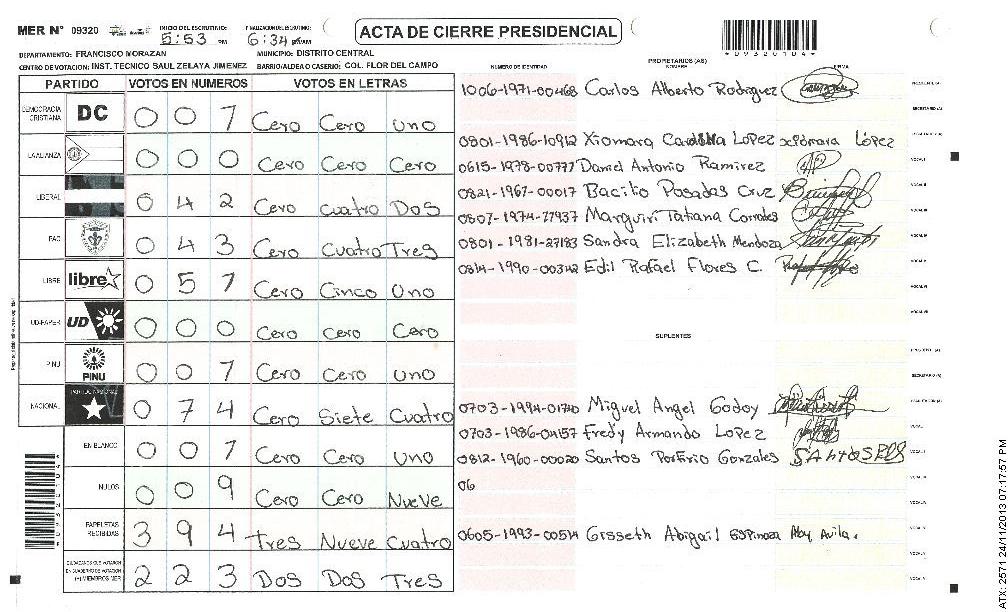 MER N° 09320 INICIO DEL ESCRUTINIO: 5:53 PM FINALIZACION DEL ESCRUTINIO: 6:34 PM
ACTA DE CIERRE PRESIDENCIAL
*09320104*
DEPARTAMENTO: FRANCISCO MORAZAN MUNICIPIO: DISTRITO CENTRAL
CENTRO DE VOTACION: INST. TECNICO SAUL ZELAYA JIMENEZ BARRIO/ALDEA O CASERIO: COL. FLOR DEL CAMPO
PARTIDO VOTOS EN NUMEROS VOTOS EN LETRAS
DEMOCRACIA CRISTIANA DC 0 0 1 Cero Cero Uno
LA ALIANZA 0 0 0 Cero Cero Cero
LIBERAL 0 4 2 Cero Cuatro Dos
PAC 0 4 3 Cero Cuatro Tres
LIBRE libre 0 5 1 Cero Cinco Uno
UD-FAPER UD 0 0 0 Cero Cero Cero
PINU PINU 0 0 1 Cero Cero Uno
NACIONAL PARTIDO NACIONAL 0 7 4 Cero Siete Cuatro
EN BLANCO 0 0 1 Cero Cero Uno
NULOS 0 0 9 Cero Cero Nueve
PAPELETAS RECIBIDAS 3 9 4 Tres Nueve Cuatro
CIUDADANOS QUE VOTARON EN CUADERNO DE VOTACION (+) MIEMBROS MER 2 2 3 Dos Dos Tres
PROPIETARIOS (AS)
NUMERO DE IDENTIDAD NOMBRE FIRMA
1006-1971-00468 Carlos Alberto Rodriguez
0801-1986-10912 Xiomara Lopez López
0615-1978-00777 Daniel Antonio Ramirez
0821-1967-00017 Bacilio Posadas Cruz
Tatiana Corrales
0801-1981-27183 Sandra Elizabeth Mendoza
Edil Rafael Flores C.
SUPLENTES
0703-1994-01740 Miguel Angel Godoy
0703-1986-04157 Fredy Armando Lopez
0812-1960-00020 Santos Porfirio Gonzales
06
0605-1993-00514 Gisseth Abigail Espinoza Aby Avila.
ATX: 2571 24/11/2013 07:17:57 PM